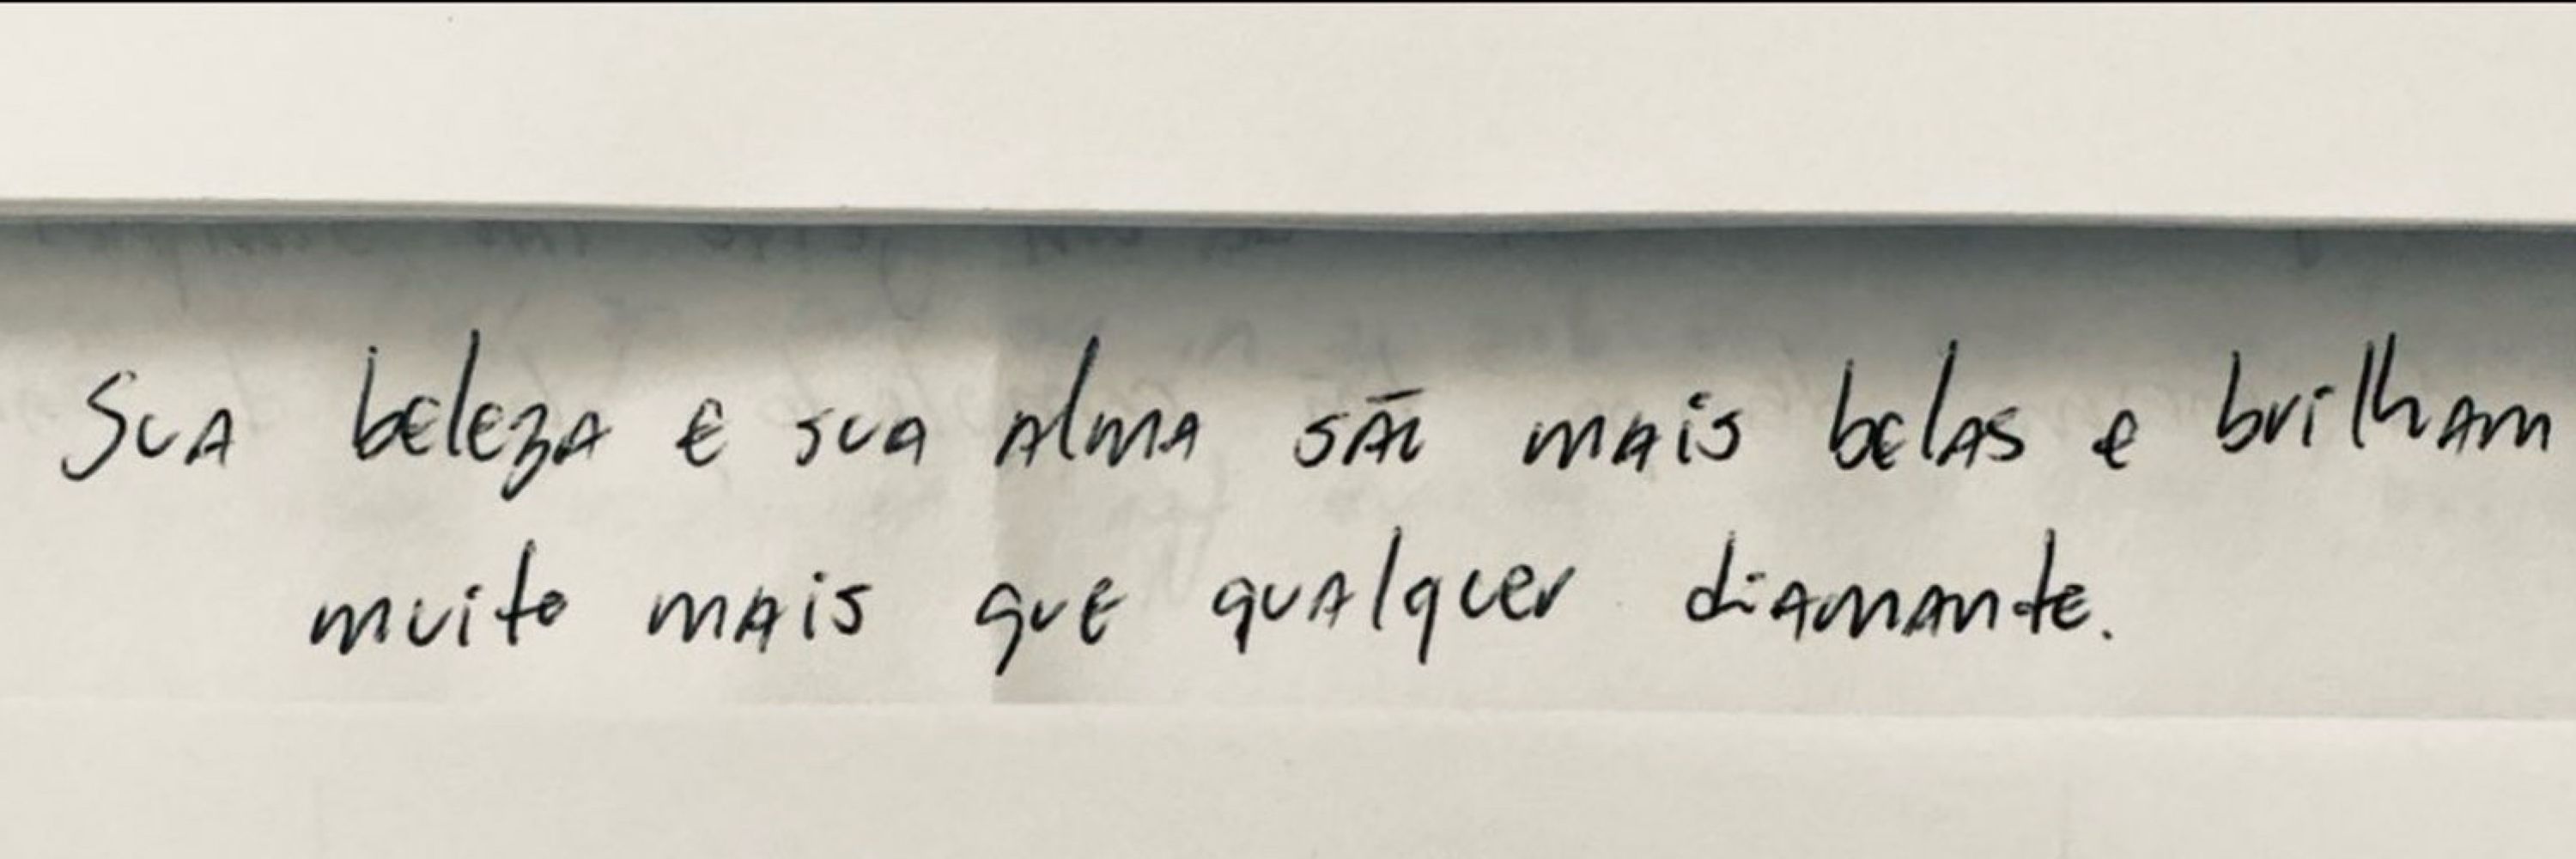 Sua beleza e sua alma são mais belas e brilham
muito mais que qualquer diamante.